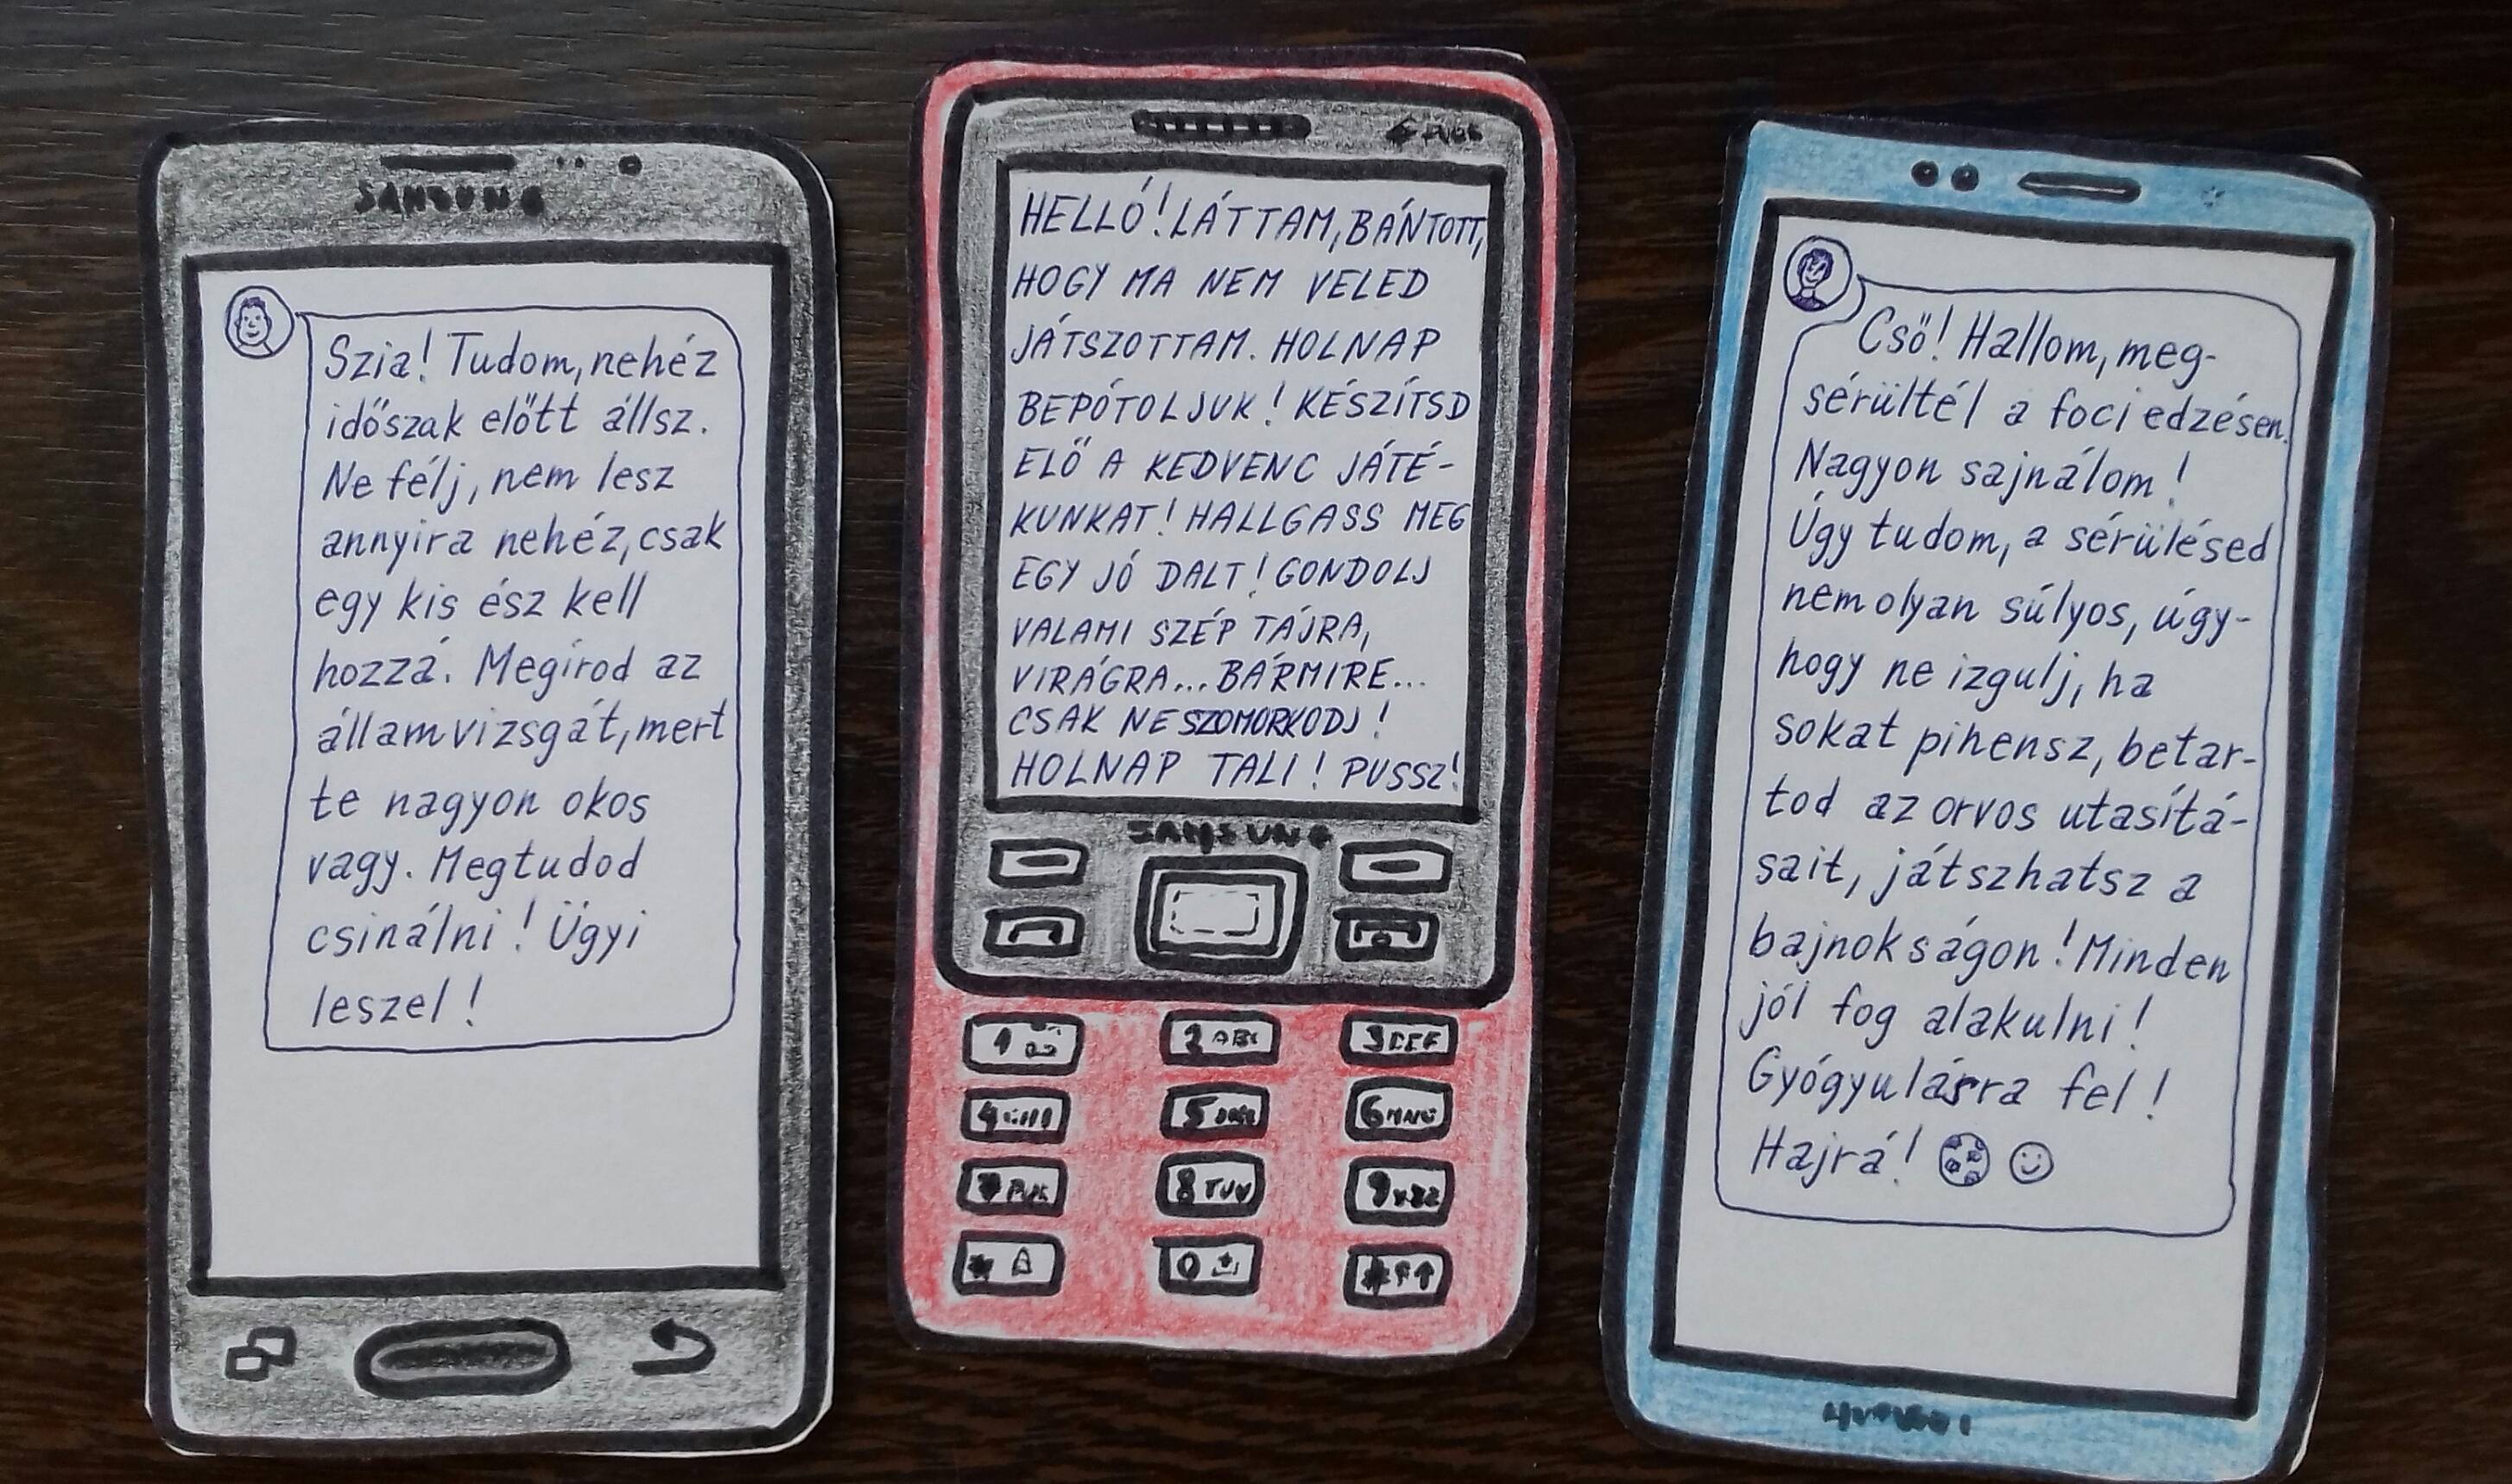 SAMSUNG
Szia! Tudom, nehéz
időszak előtt állsz.
Ne félj, nem lesz
annyira nehéz, csak
egy kis ész kell
hozzá. Megírod az
államvizsgát, mert
te nagyon okos
vagy. Megtudod
csinálni! Ügyi
leszel!
HELLÓ! LÁTTAM, BÁNTOTT,
HOGY MA NEM VELED
JÁTSZOTTAM. HOLNAP
BEPÓTOLJUK! KÉSZÍTSD
ELŐ A KEDVENC JÁTÉ-
KUNKAT! HALLGASS MEG
EGY JÓ DALT! GONDOLJ
VALAMI SZÉP TÁJRA,
VIRÁGRA... BÁRMIRE...
CSAK NE SZOMORKODJ!
HOLNAP TALI! PUSSZ!
SAMSUNG
1
2 ABC
3 DEF
4
5
6 MNO
8 TUV
9
*
0
#
Cső! Hallom, meg-
sérültél a foci edzésen.
Nagyon sajnálom!
Úgy tudom, a sérülésed
nem olyan súlyos, úgy-
hogy ne izgulj, ha
sokat pihensz, betar-
tod az orvos utasítá-
sait, játszhatsz a
bajnokságon! Minden
jól fog alakulni!
Gyógyulásra fel!
Hajrá!